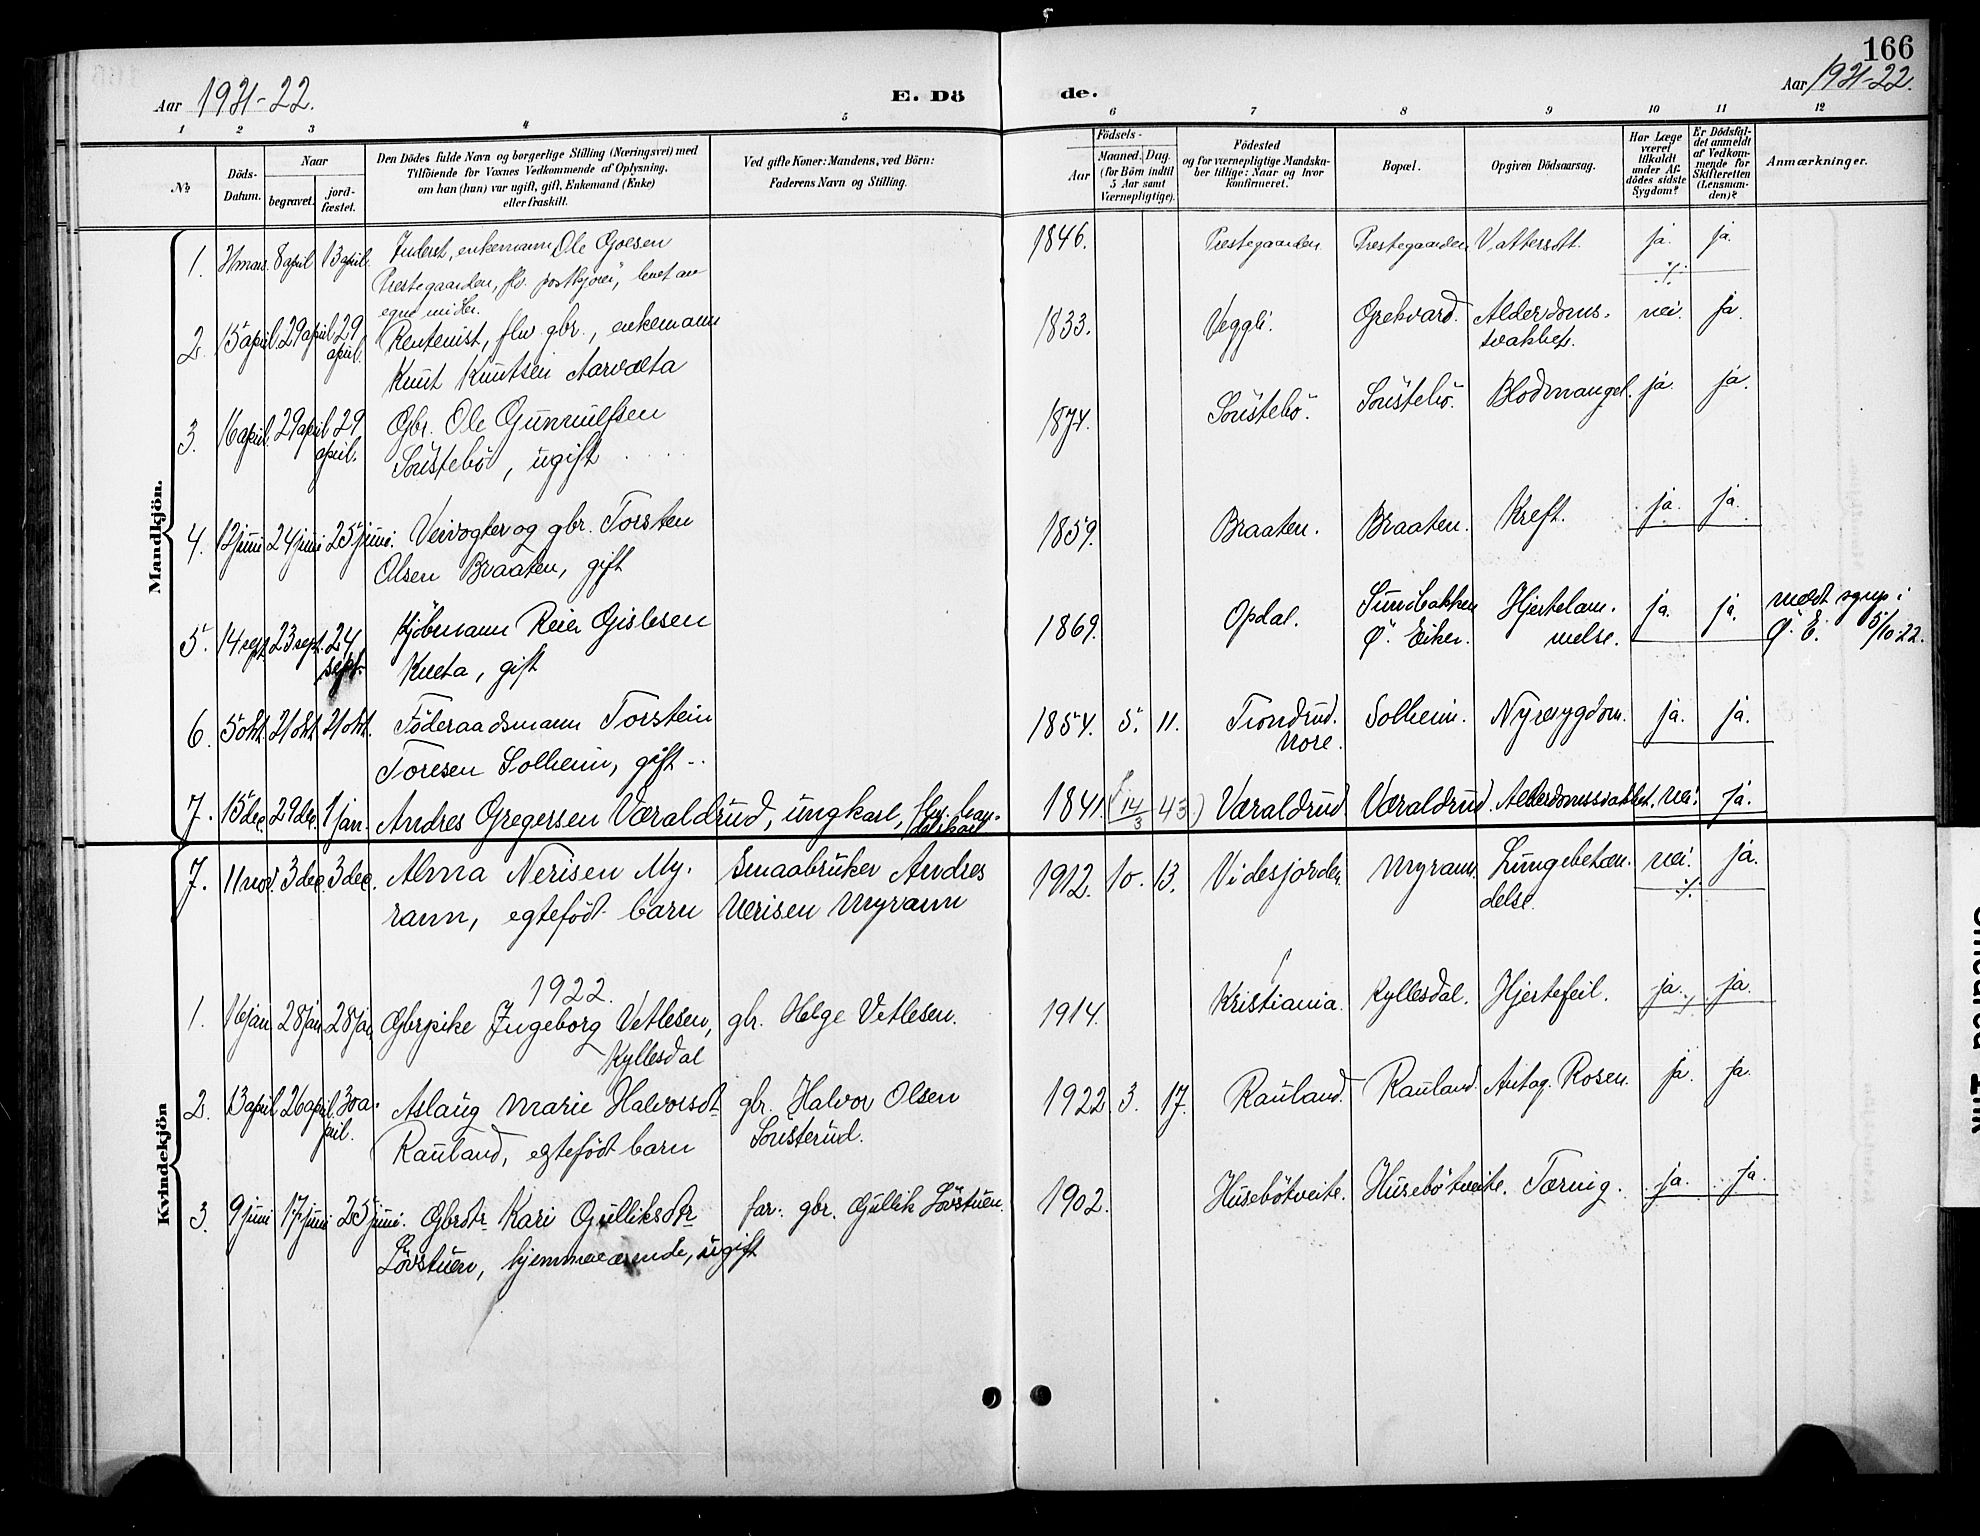 166
Aar 1921-22.
E. Dö
de.
Aar 1921-22.
1 2 3 4 5 6 7 8 9 10 11 12
№
Döds-Datum.
Naar
begravet.
jord-fæstet.
Den Dödes fulde Navn og borgerlige Stilling (Næringsvei) med
Tilföiende for Voxnes Vedkommende af Oplysning,
om han (hun) var ugift, gift, Enkemand (Enke)
eller fraskilt.
Ved gifte Koner: Mandens, ved Börn:
Faderens Navn og Stilling.
Födsels-
Aar
Maaned. Dag.
(for Börn indtil
5 Aar samt
Værnepligtige).
Födested
og for værnepligtige Mandska-
ber tillige: Naar og hvor
konfirmeret.
Bopæl.
Opgiven Dödsaarsag.
Har Læge
været
tilkaldt
under Af-
dödes sidste
Sygdom?
Er Dödsfal-
det anmeldt
af Vedkom-
mende for
Skifteretten
(Lensman-
den)?
Anmærkninger.
Mandkjön.
1. 31 mars. 8 april 13 april. Inderst, enkemann, Ole Goesen 1846. Prestegaarden. Prestegaarden Vattersott. ja. ja.
Prestegaarden, flv. postkjörer, levet av
egne midler.
2. 15 april. 29 april 29 april. Rentenist, flv gbr., enkemann 1833. Veggli. Grekvard. Alderdoms-svakhet. nei. ja.
Knut Knutsen Aarvælta
3. 16 april. 29 april 29 april. Gbr. Ole Gunnulfsen 1874. Sönstebö. Sönstebö. Blodmangel. ja. ja.
Sönstebö, ugift
4. 12 juni 24 juni 25 juni. Veivogter og gbr. Torsten 1859. Braaten. Braaten. Kreft. ja. ja.
Olsen Braaten, gift
5. 14 sept. 23 sept. 24 sept. Kjöbmann Reier Gislesen 1869. Opdal. Sundbakken Ö. Eiker. Hjertelam-melse. ja. ja. i Ö. E. 5/10.22.
Kneta, gift
6. 5 okt. 21 okt. 21 okt. Föderaadsmann Torstein 1854. 5. 11. Trondrud. Nore. Solheim. Nyresygdom. ja. ja.
Toresen Solheim, gift
7. 15 dec. 29 dec. 1 jan. Andres Gregersen Væraldrud, ungkar, flv. han-delskar 1841. (14/3 43) Væraldrud Væraldrud. Alderdomssvakhet. nei. ja.
Kvindekjön
7. 11 nov. 3 dec 3 dec. Anna Nerisen My- Smaabruker Andres 1912. 10. 13. Videsjorden. Myrann. Lungebetæn-delse. nei. ja.
rann, egtefödt barn Nerisen Myrann
1922.
1. 16 jan 28 jan 28 jan. Gbrpike Ingeborg Vetlesen, gbr. Helge Vetlesen. 1914. Kristiania. Kyllesdal. Hjertefeil. ja. ja.
Kyllesdal
2. 13 april 26 april. 30 a-pril. Aslaug Marie Halvorsdt. gbr. Halvor Olsen 1922 3. 17. Rauland. Rauland. Antag. Rosen. ja. ja.
Rauland, egtefödt barn Sönsterud.
3. 9 juni 17 juni 25 juni. Gbrdtr Kari Gulliksdtr far: gbr. Gullik Lövstuen. 1902. Husebötveite. Husebötveite. Tæring. ja. ja.
Lövstuen, hjemmeværende, ugift